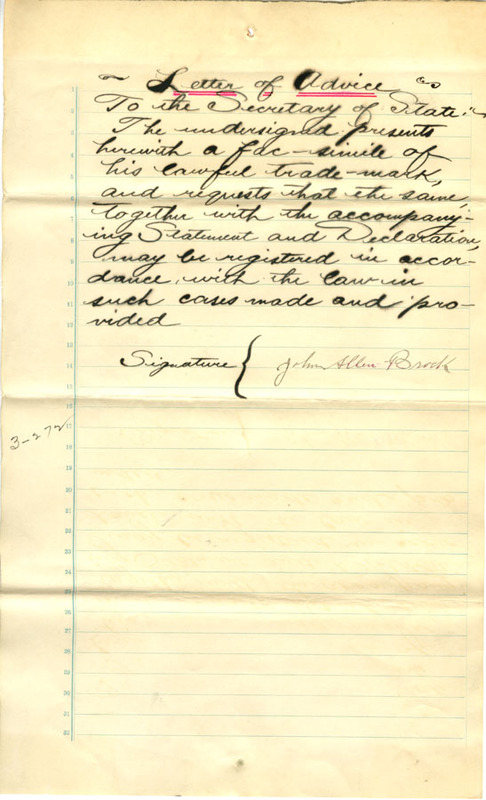 Letter of Advice
To the Secretary of State:-
The undersigned presents
herewith a fac-simile of
his lawful trade-mark,
and requests that the same,
together with the accompany-
ing Statement and Declaration,
may be registered in accor-
dance, with the law in
such cases made and pro-
vided
Signature { John Allen Brock
3-272